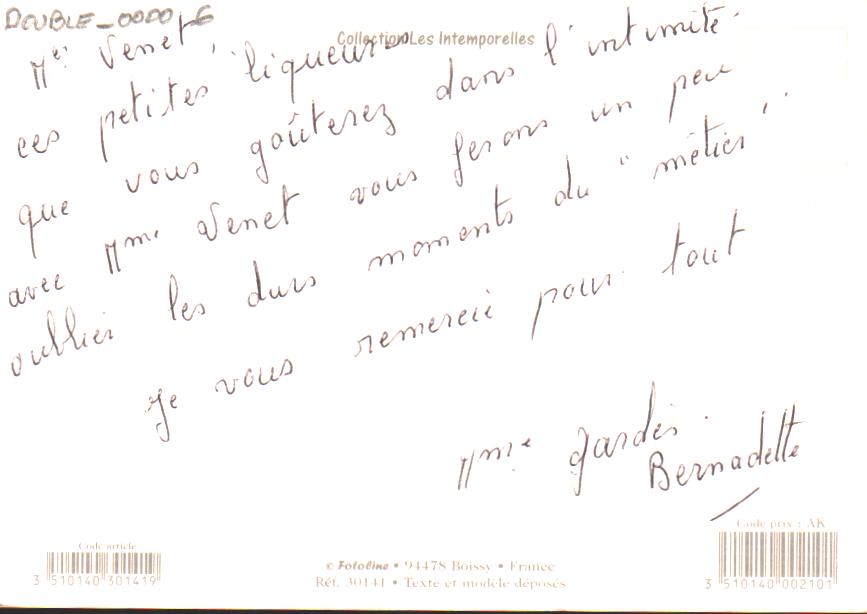 DOUBLE_0000_6
Collection Les Intemporelles
Mei Venet,
ces petites liqueurs
que vous goûterez dans l'intimité
avec Mme Venet vous ferons un peu
oublier les durs moments du "métier".
Je vous remercie pour tout
Mme gardés.
Bernadette
Code article
3 510140 301419
© Fotoline • 94478 Boissy • France
Réf. 30141 • Texte et modèle déposés
Code prix : AK
3 510140 002101